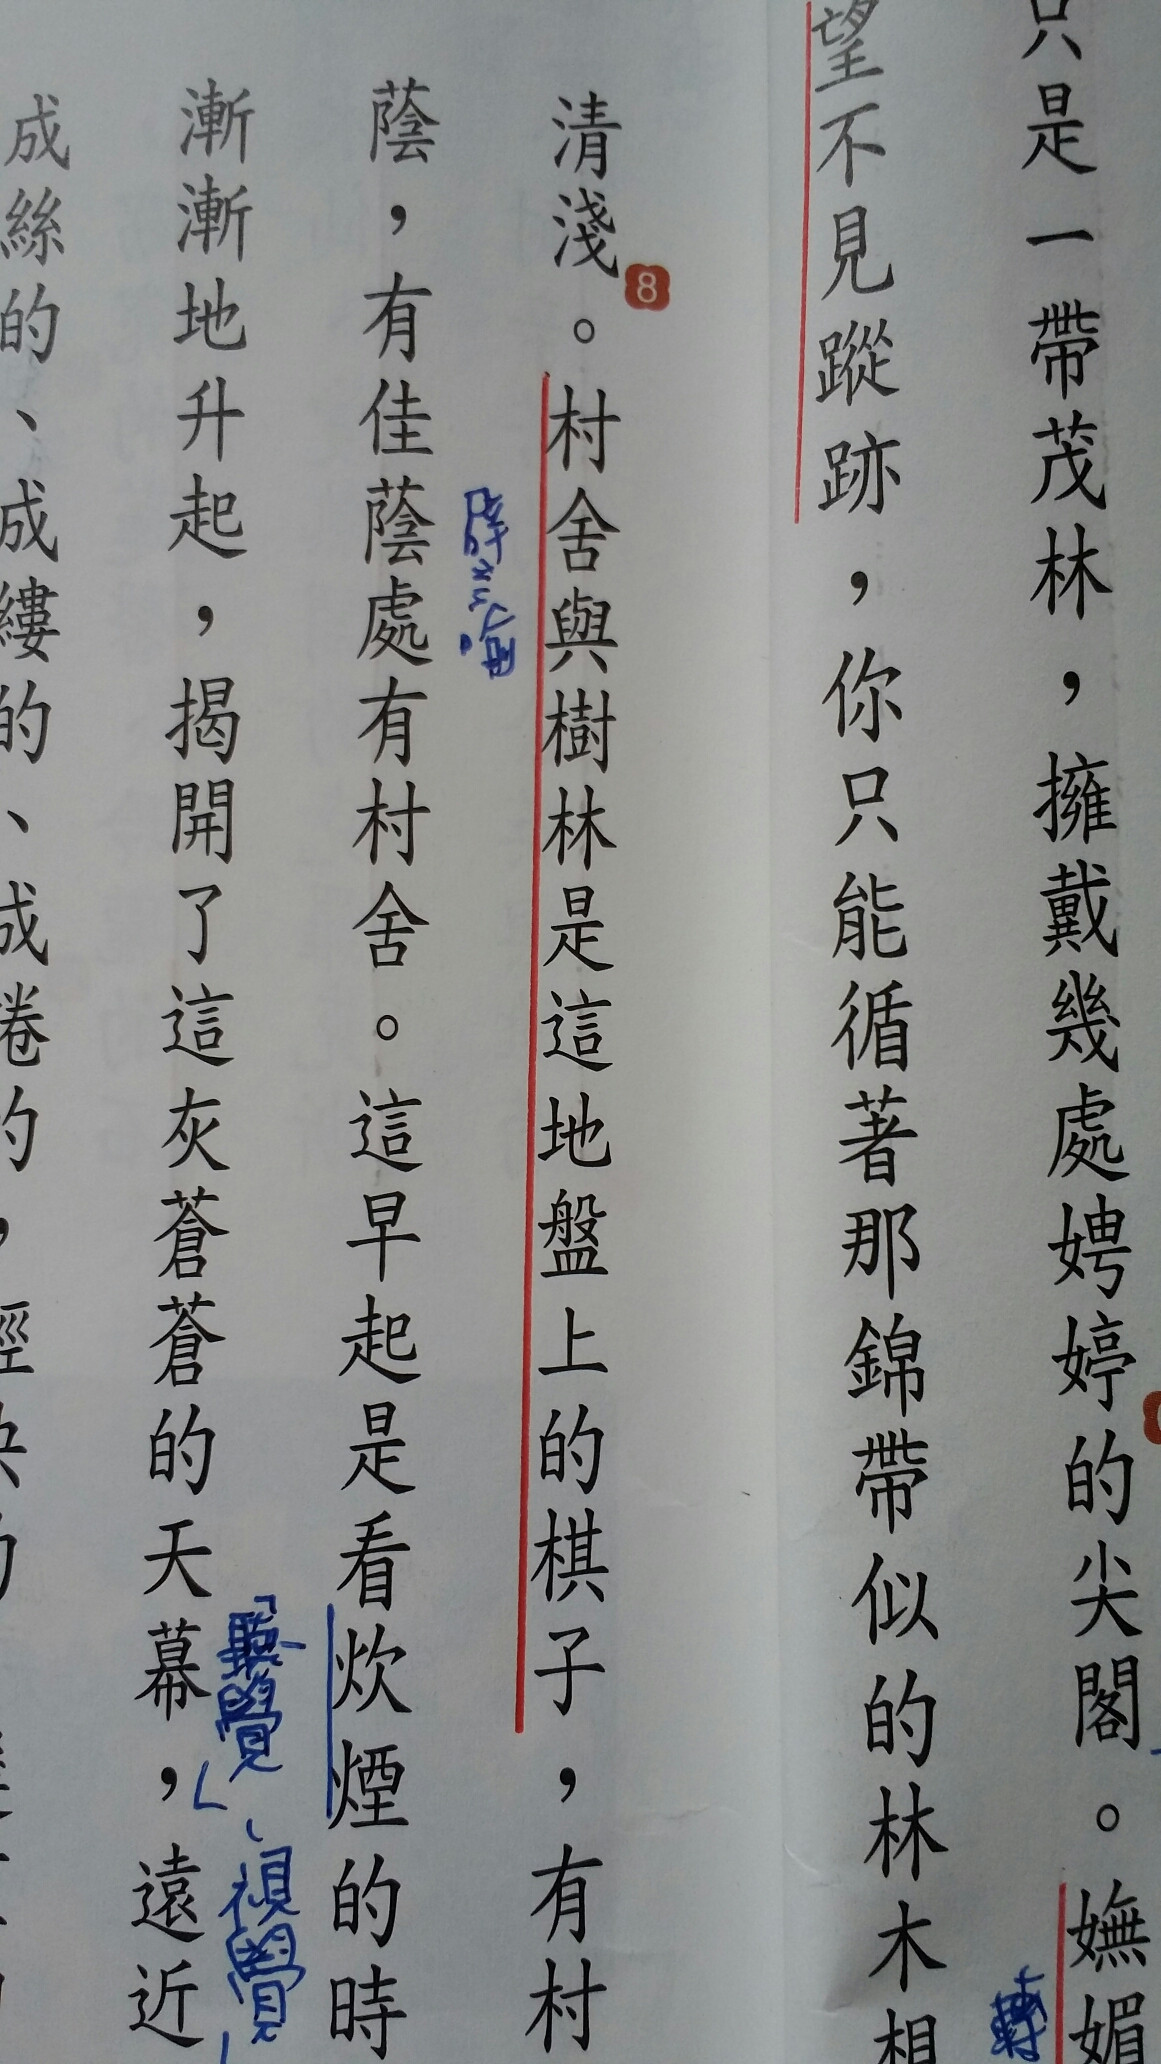 只是一帶茂林，擁戴幾處娉婷的尖閣。嫵媚
轉
望不見蹤跡，你只能循著那錦帶似的林木想
清淺。8村舍與樹林是這地盤上的棋子，有村
蔭，有佳蔭處有村舍。這早起是看炊煙的時
「聽覺」、視覺
漸漸地升起，揭開了這灰蒼蒼的天幕，遠近
成絲的、成縷的、成捲的，輕快的